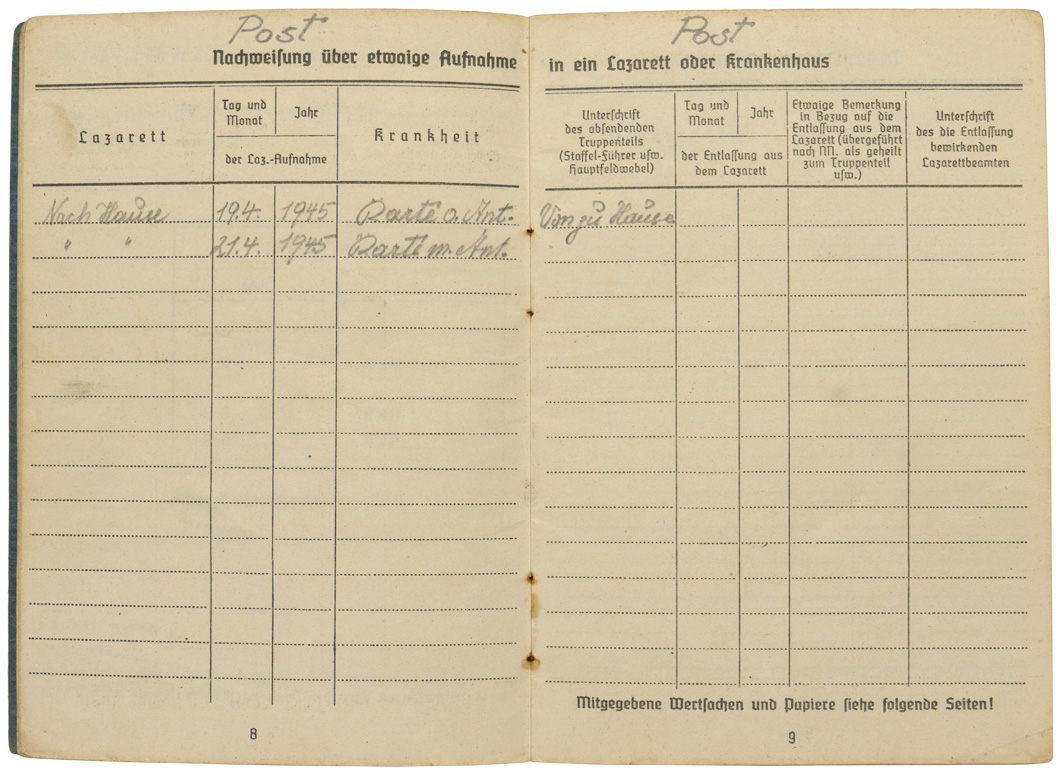 Post
Nachweisung über etwaige Aufnahme
Lazarett
Tag und
Monat
Jahr
der Laz.-Aufnahme
Krankheit
Nach Hause 19.4. 1945 Karte o. Ant.
" " 21.4. 1945 Karte m. Ant.
8
Post
in ein Lazarett oder Krankenhaus
Unterschrift
des absendenden
Truppenteils
(Staffel-Führer usw.
Hauptfeldwebel)
Tag und
Monat
Jahr
der Entlassung aus
dem Lazarett
Etwaige Bemerkung
in Bezug auf die
Entlassung aus dem
Lazarett (übergeführt
nach NN. als geheilt
zum Truppenteil
usw.)
Unterschrift
des die Entlassung
bewirkenden
Lazarettbeamten
Von zu Hause
Mitgegebene Wertsachen und Papiere siehe folgende Seiten!
9